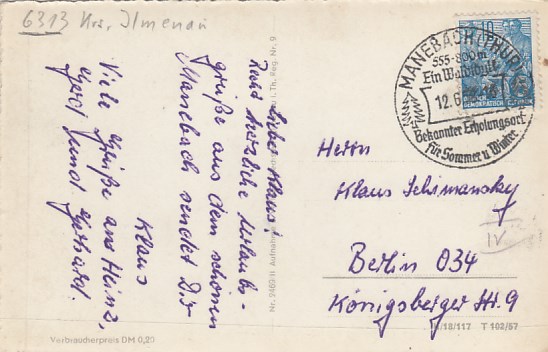 6313 Krs. Ilmenau
Lieber Klaus!
Recht herzliche Urlaubs-
grüße aus dem schönen
Manebach sendet Dir
Klaus
Viele Grüße an Heinz,
Gerd und Gerhard.
MANEBACH (THÜR)
555-800m
Ein Waldidyll
12.6.
Bekannter Erholungsort
für Sommer u Winter
10
Herrn
Klaus Schimansky
Berlin O34
Königsberger Str. 9
IV
Verbraucherpreis DM 0,20
Nr. 9469 H Aufnahme
i. Th. Reg. Nr. 9
K/18/117 T 102/57